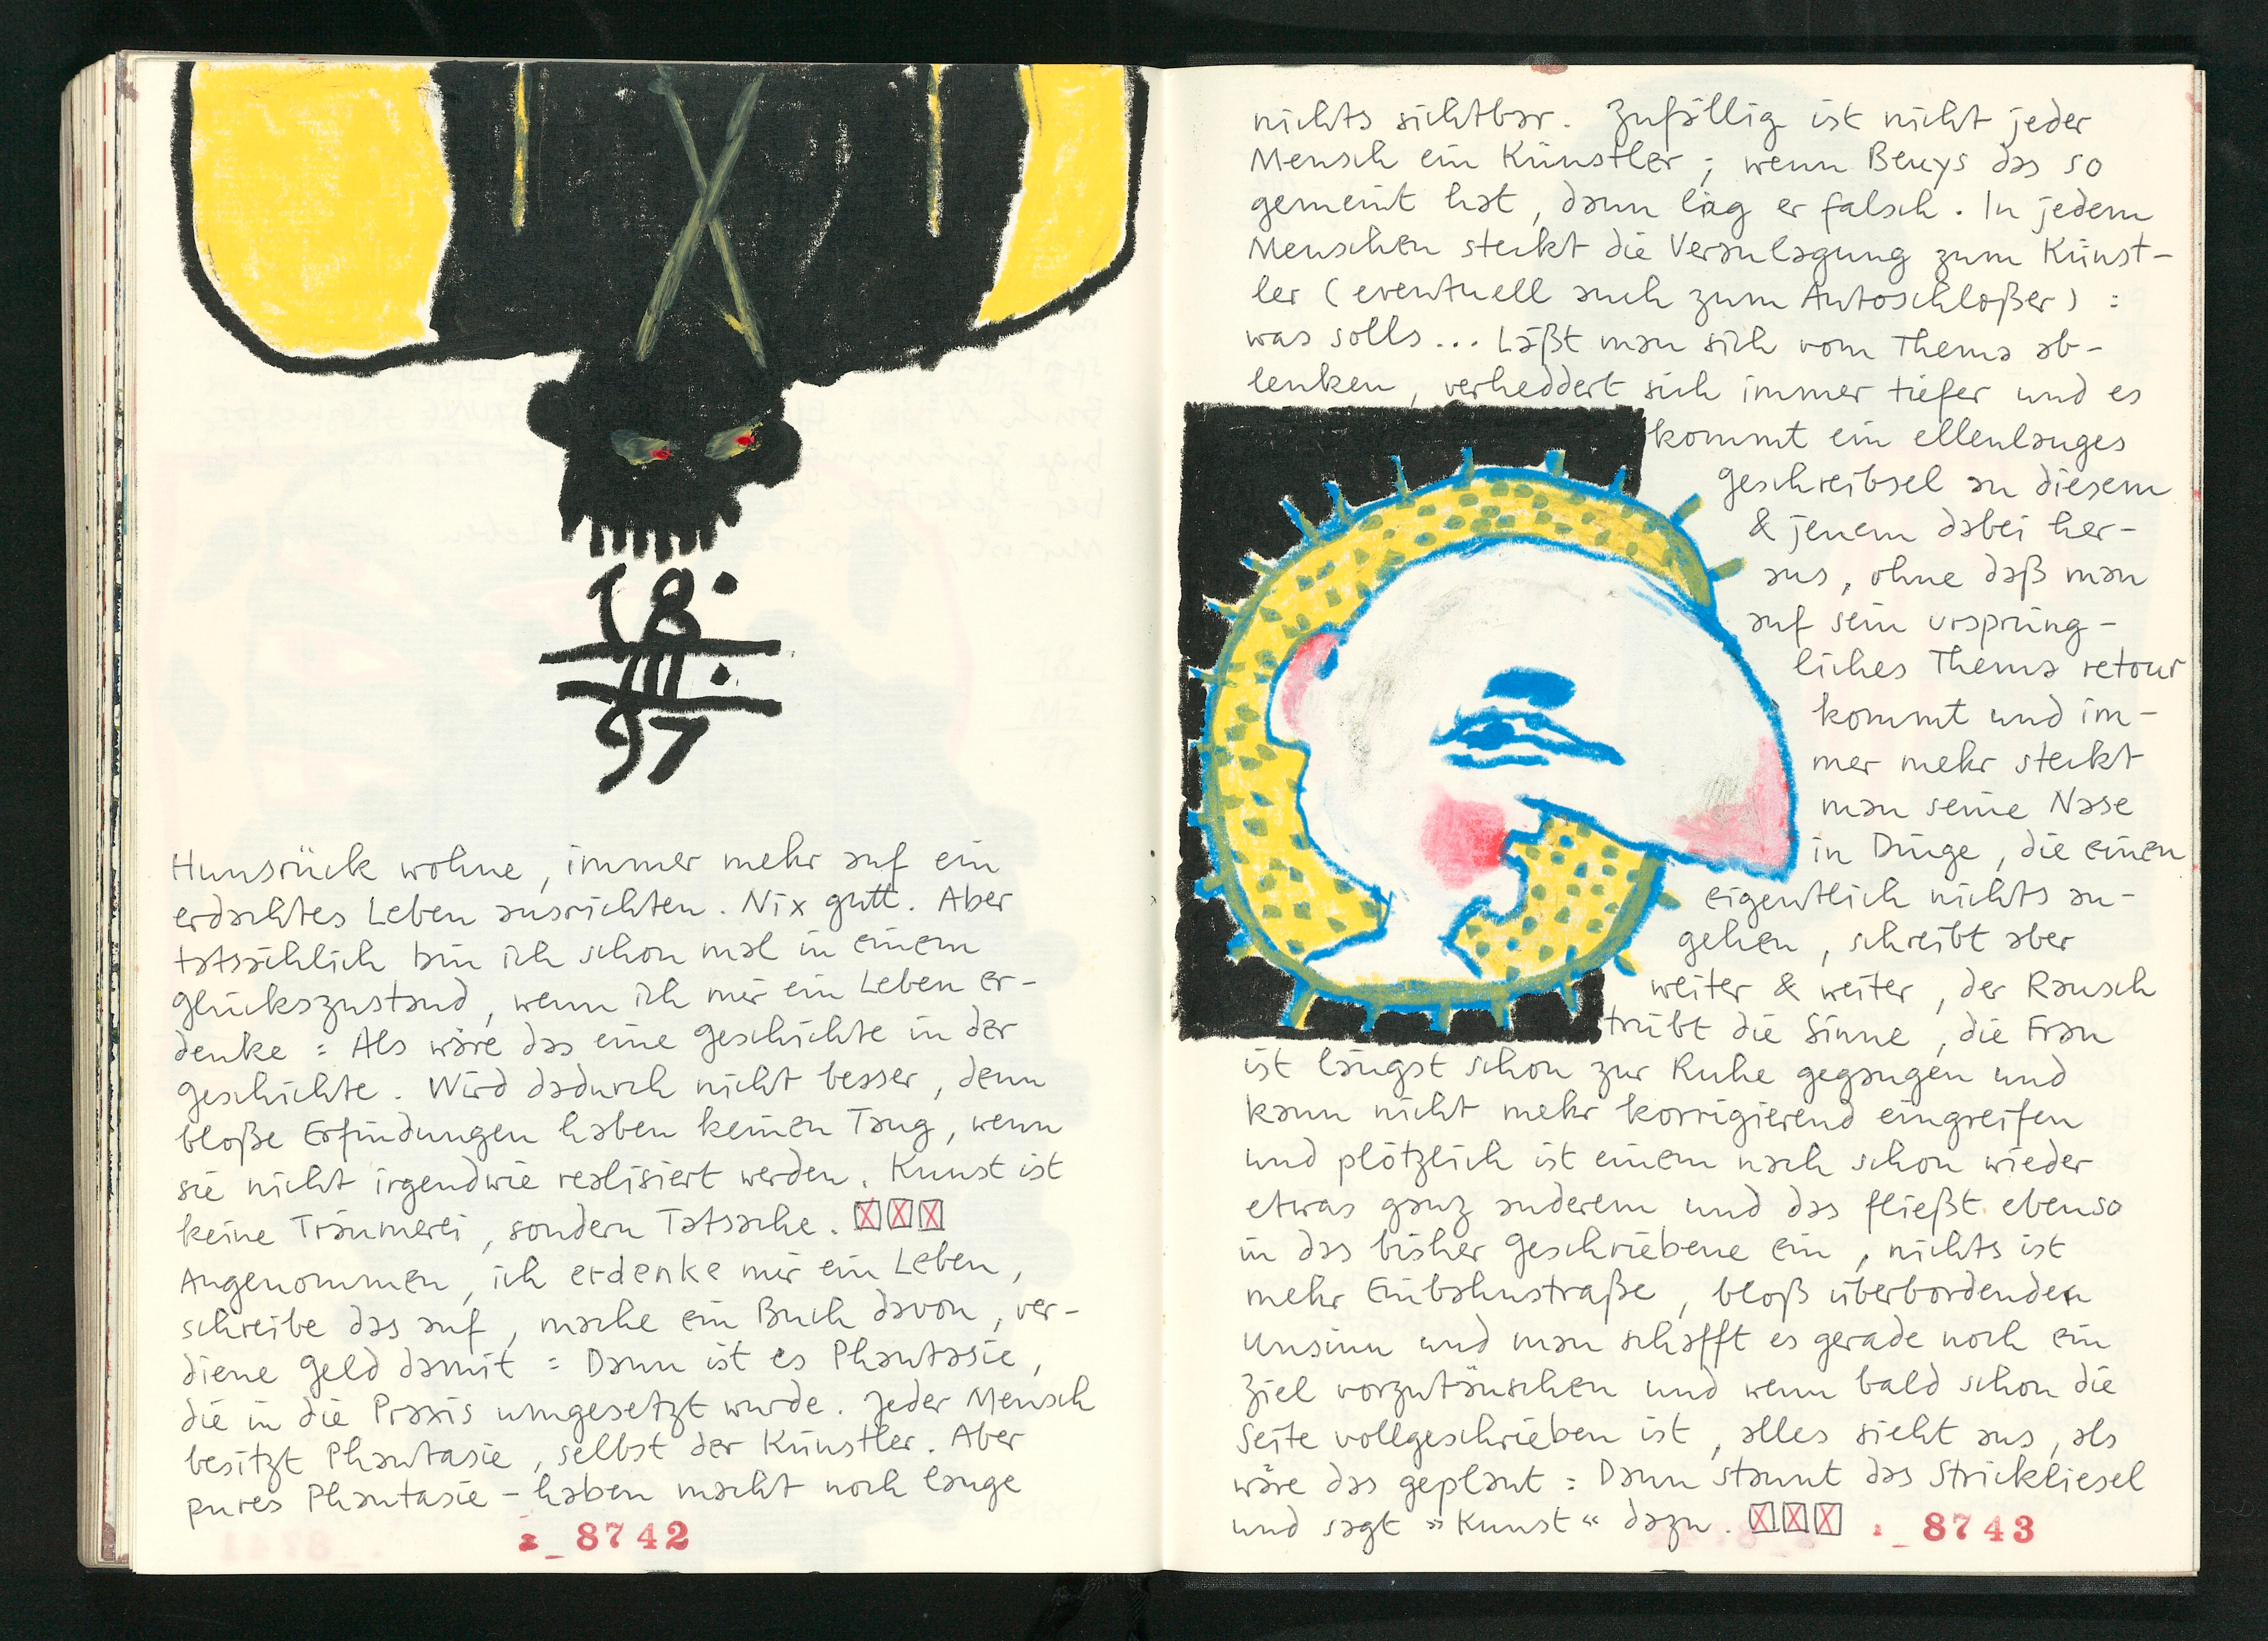 18.
III.
97
Hunsrück wohne, immer mehr auf ein
erdachtes Leben ausrichten. Nix gutt. Aber
tatsächlich bin ich schon mal in einem
Glückszustand, wenn ich mir ein Leben er-
denke : Als wäre das eine Geschichte in der
Geschichte. Wird dadurch nicht besser, denn
bloße Erfindungen haben keinen Taug, wenn
sie nicht irgendwie realisiert werden. Kunst ist
keine Träumerei, sondern Tatsache. XXX
Angenommen, ich erdenke mir ein Leben,
schreibe das auf, mache ein Buch davon, ver-
diene Geld damit : Dann ist es Phantasie,
die in die Praxis umgesetzt wurde. Jeder Mensch
besitzt Phantasie, selbst der Künstler. Aber
pures Phantasie-haben macht noch lange
8742
nichts sichtbar. Zufällig ist nicht jeder
Mensch ein Künstler; wenn Beuys das so
gemeint hat, dann lag er falsch. In jedem
Menschen steckt die Veranlagung zum Künst-
ler (eventuell auch zum Autoschloßer) :
was solls... Läßt man sich vom Thema ab-
lenken, verheddert sich immer tiefer und es
kommt ein ellenlanges
Geschreibsel zu diesem
& jenem dabei her-
aus, ohne daß man
auf sein ursprüng-
liches Thema retour
kommt und im-
mer mehr steckt
man seine Nase
in Dinge, die einen
eigentlich nichts an-
gehen, schreibt aber
weiter & weiter, der Rausch
trübt die Sinne, die Frau
ist längst schon zur Ruhe gegangen und
kann nicht mehr korrigierend eingreifen
und plötzlich ist einem nach schon wieder
etwas ganz anderem und das fließt ebenso
in das bisher Geschriebene ein, nichts ist
mehr Einbahnstraße, bloß überbordender
Unsinn und man schafft es gerade noch ein
Ziel vorzutäuschen und wenn bald schon die
Seite vollgeschrieben ist, alles sieht aus, als
wäre das geplant : Dann staunt das Strickliesel
und sagt »Kunst« dazu. XXX
8743